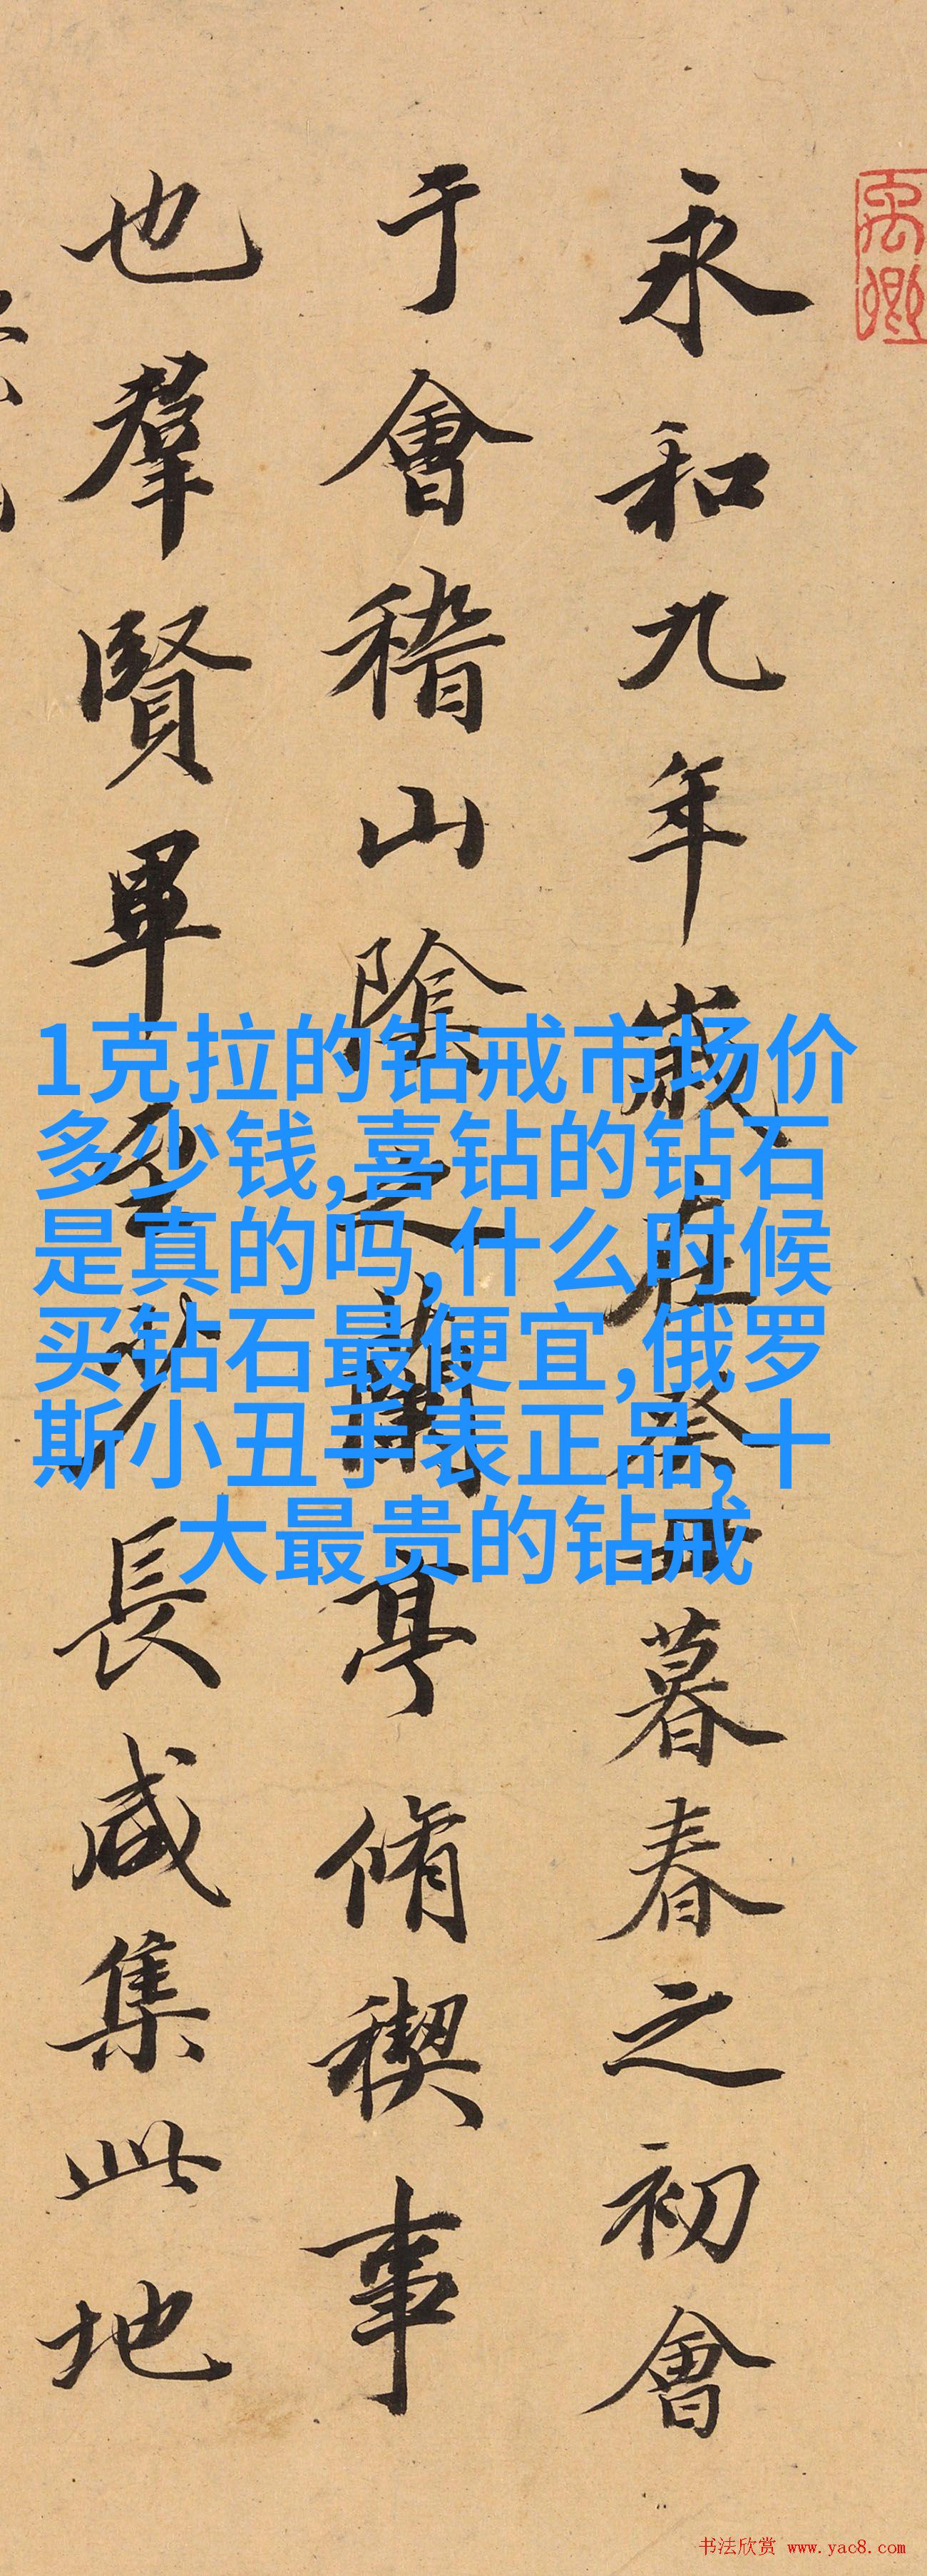 禹卿
永和九年歲在癸丑暮春之初會
于會稽山陰之蘭亭脩稧事
也羣賢畢至少長咸集此地
1克拉的钻戒市场价
多少钱,喜钻的钻石
是真的吗,什么时候
买钻石最便宜,俄罗
斯小丑手表正品,十
大最贵的钻戒
书法欣赏 www.yac8.com